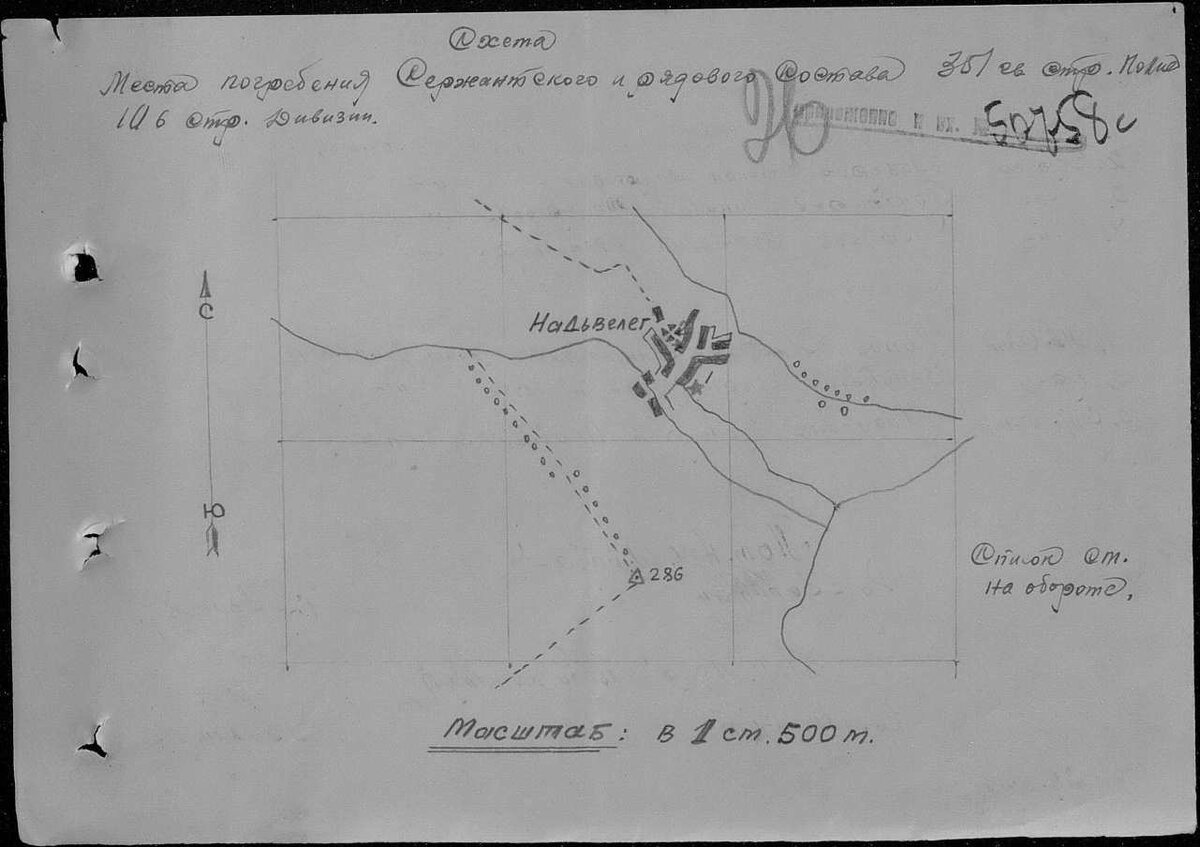 Схема
Места погребения Сержантского и рядового Состава 351 св стр. Полка
106 стр. Дивизии.
приложение к вх. №
50758с
Надьвелег
С
Ю
286
Список см.
на обороте,
Масштаб: в 1 см. 500 м.